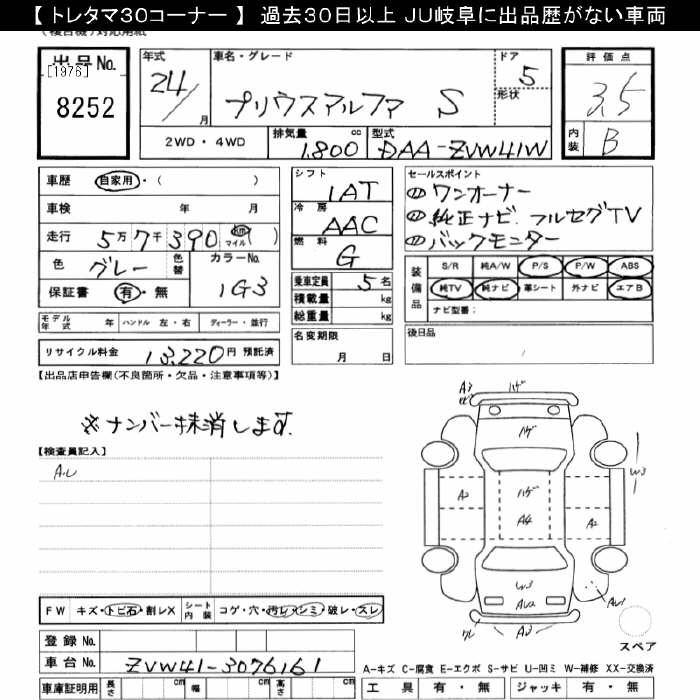 【 トレタマ30コーナー 】 過去30日以上 JU岐阜に出品歴がない車両
出品No.
[1976]
8252
年式
24/
月
車名・グレード
プリウスアルファ S
ドア
5
形状
評価点
3.5
内装
B
2WD・4WD
排気量
cc
1.800
型式
DAA-ZVW41W
車歴
自家用・( )
車検
年 月
走行
5万7千390 km マイル ( )
色
グレー
色替
カラーNo.
1G3
保証書
有・無
シフト
1AT
冷房
AAC
燃料
G
乗車定員
5名
積載量
kg
総重量
kg
名変期限
月 日
セールスポイント
① ワンオーナー
② 純正ナビ、フルセグTV
③ バックモニター
装備品
S/R 純A/W P/S P/W ABS
純TV 純ナビ 革シート 外ナビ エアB
ナビ型番:
後日品
モデル年式
年
ハンドル 左・右
ディーラー・並行
リサイクル料金 13,220円 預託済
【出品店申告欄(不良箇所・欠品・注意事項等)】
※ナンバー抹消します。
【検査員記入】
A.U
FW キズ・トビ石・割レX
シート内装
コゲ・穴・汚レ・シミ・破レ・スレ
登録 No.
車台 No. ZVW41-3076161
車庫証明用
長さ cm 幅 cm 高さ cm
A3
ハゲ
ハゲ
ハゲ
A4
A2
A2
W3
W3
AU2
AU1
A3
スペア
A-キズ C-腐食 E-エクボ S-サビ U-凹ミ W-補修 XX-交換済
工具 有・無 ジャッキ 有・無